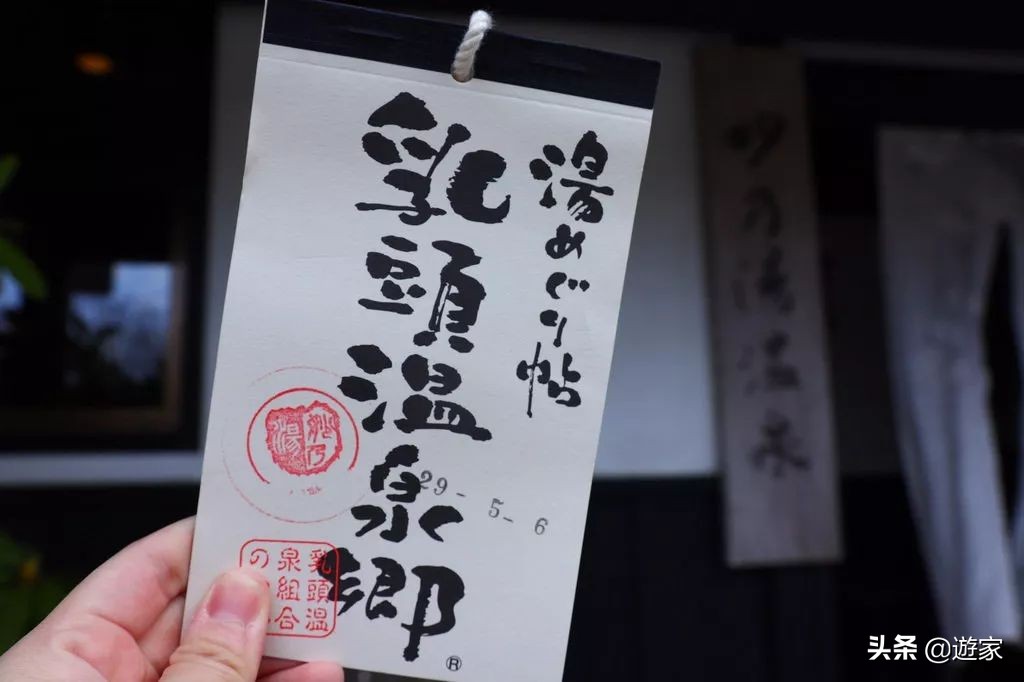 湯めぐり帖
乳頭温泉郷
®
29-5-6
妙乃湯
乳頭温
泉組合
の
妙乃湯温泉
头条 @遊家